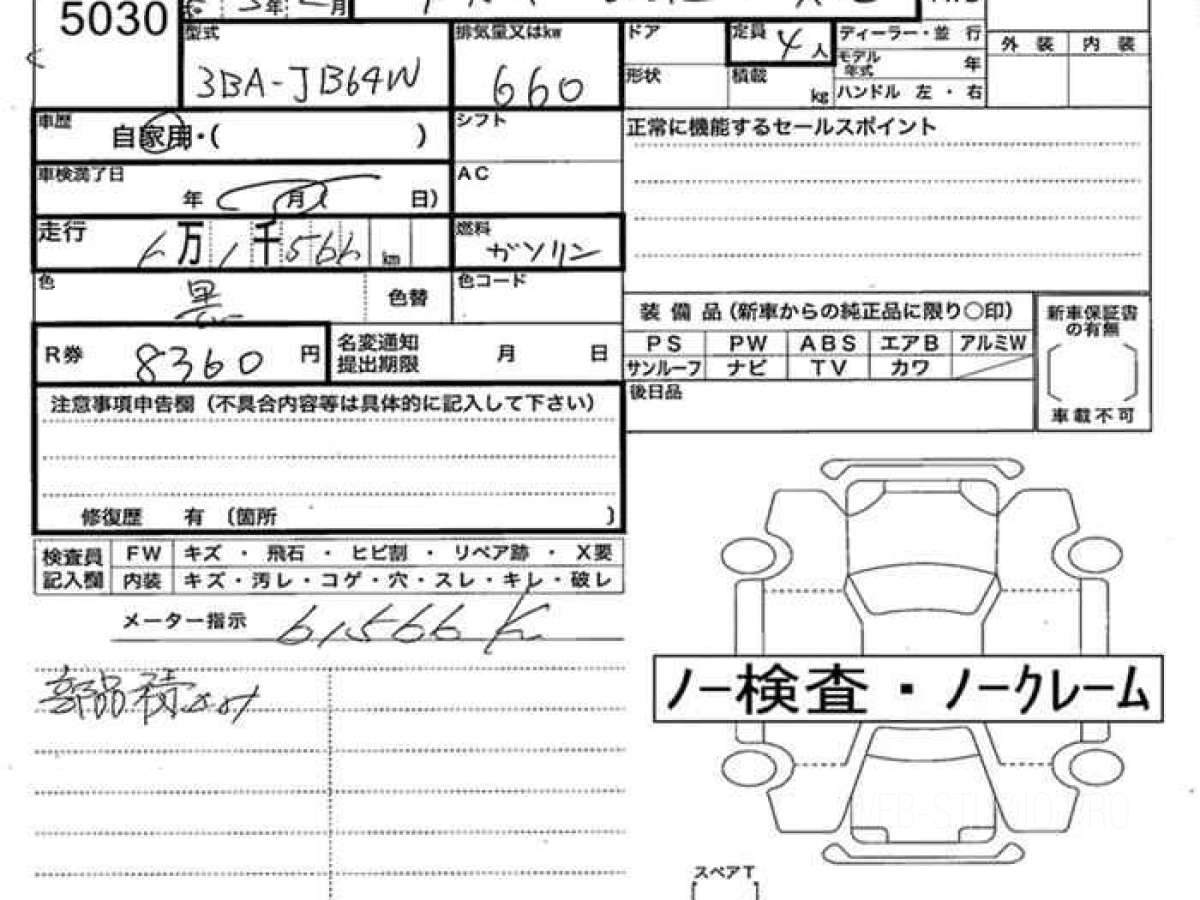 5030
年 2月
型式
3BA-JB64W
排気量又はkw
660
ドア
形状
定員 4人
積載 kg
ディーラー・並 行
モデル年式 年
ハンドル 左 ・ 右
外 装 内 装
車歴
自家用・( )
シフト
正常に機能するセールスポイント
車検満了日
年 ( 月 日)
AC
走行
6万1千566 km
燃料
ガソリン
色
黒
色替
色コード
装 備 品 (新車からの純正品に限り○印)
PS PW ABS エアB アルミW
サンルーフ ナビ TV カワ
新車保証書
の有無
車載不可
後日品
R券 8360 円
名変通知
提出期限
月 日
注意事項申告欄 (不具合内容等は具体的に記入して下さい)
修復歴 有 (箇所 )
検査員
記入欄
FW キズ ・ 飛石 ・ ヒビ割 ・ リペア跡 ・ X要
内装 キズ・汚レ・コゲ・穴・スレ・キレ・破レ
メーター指示 61566 K
部品積込み
ノー検査・ノークレーム
WEB-STUDIO.PRO
スペアT